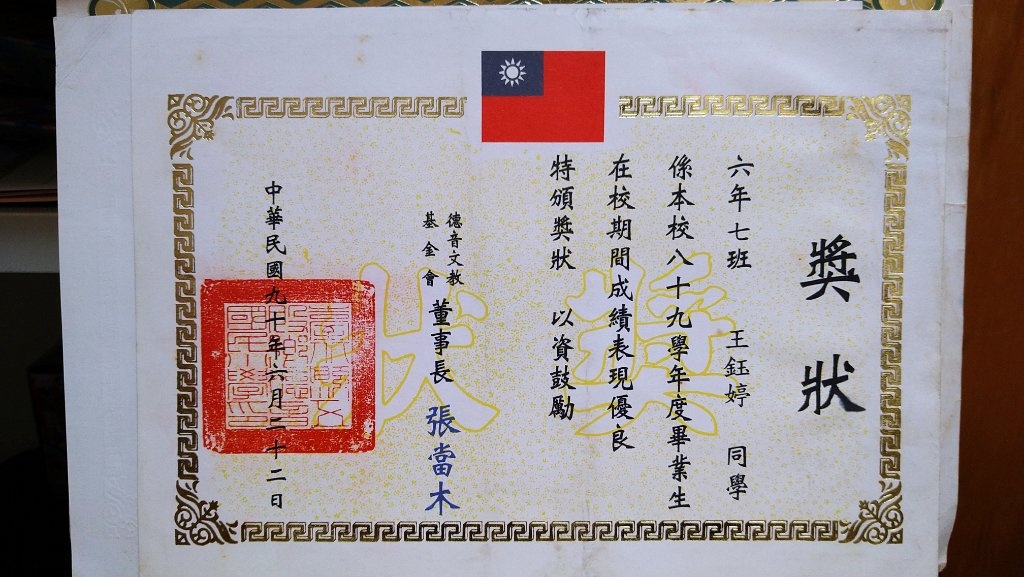 獎狀
六年七班 王鈺婷 同學
係本校八十九學年度畢業生
在校期間成績表現優良
特頒獎狀 以資鼓勵
德音文教
基金會 董事長 張當木
中華民國九十年六月二十二日
獎狀